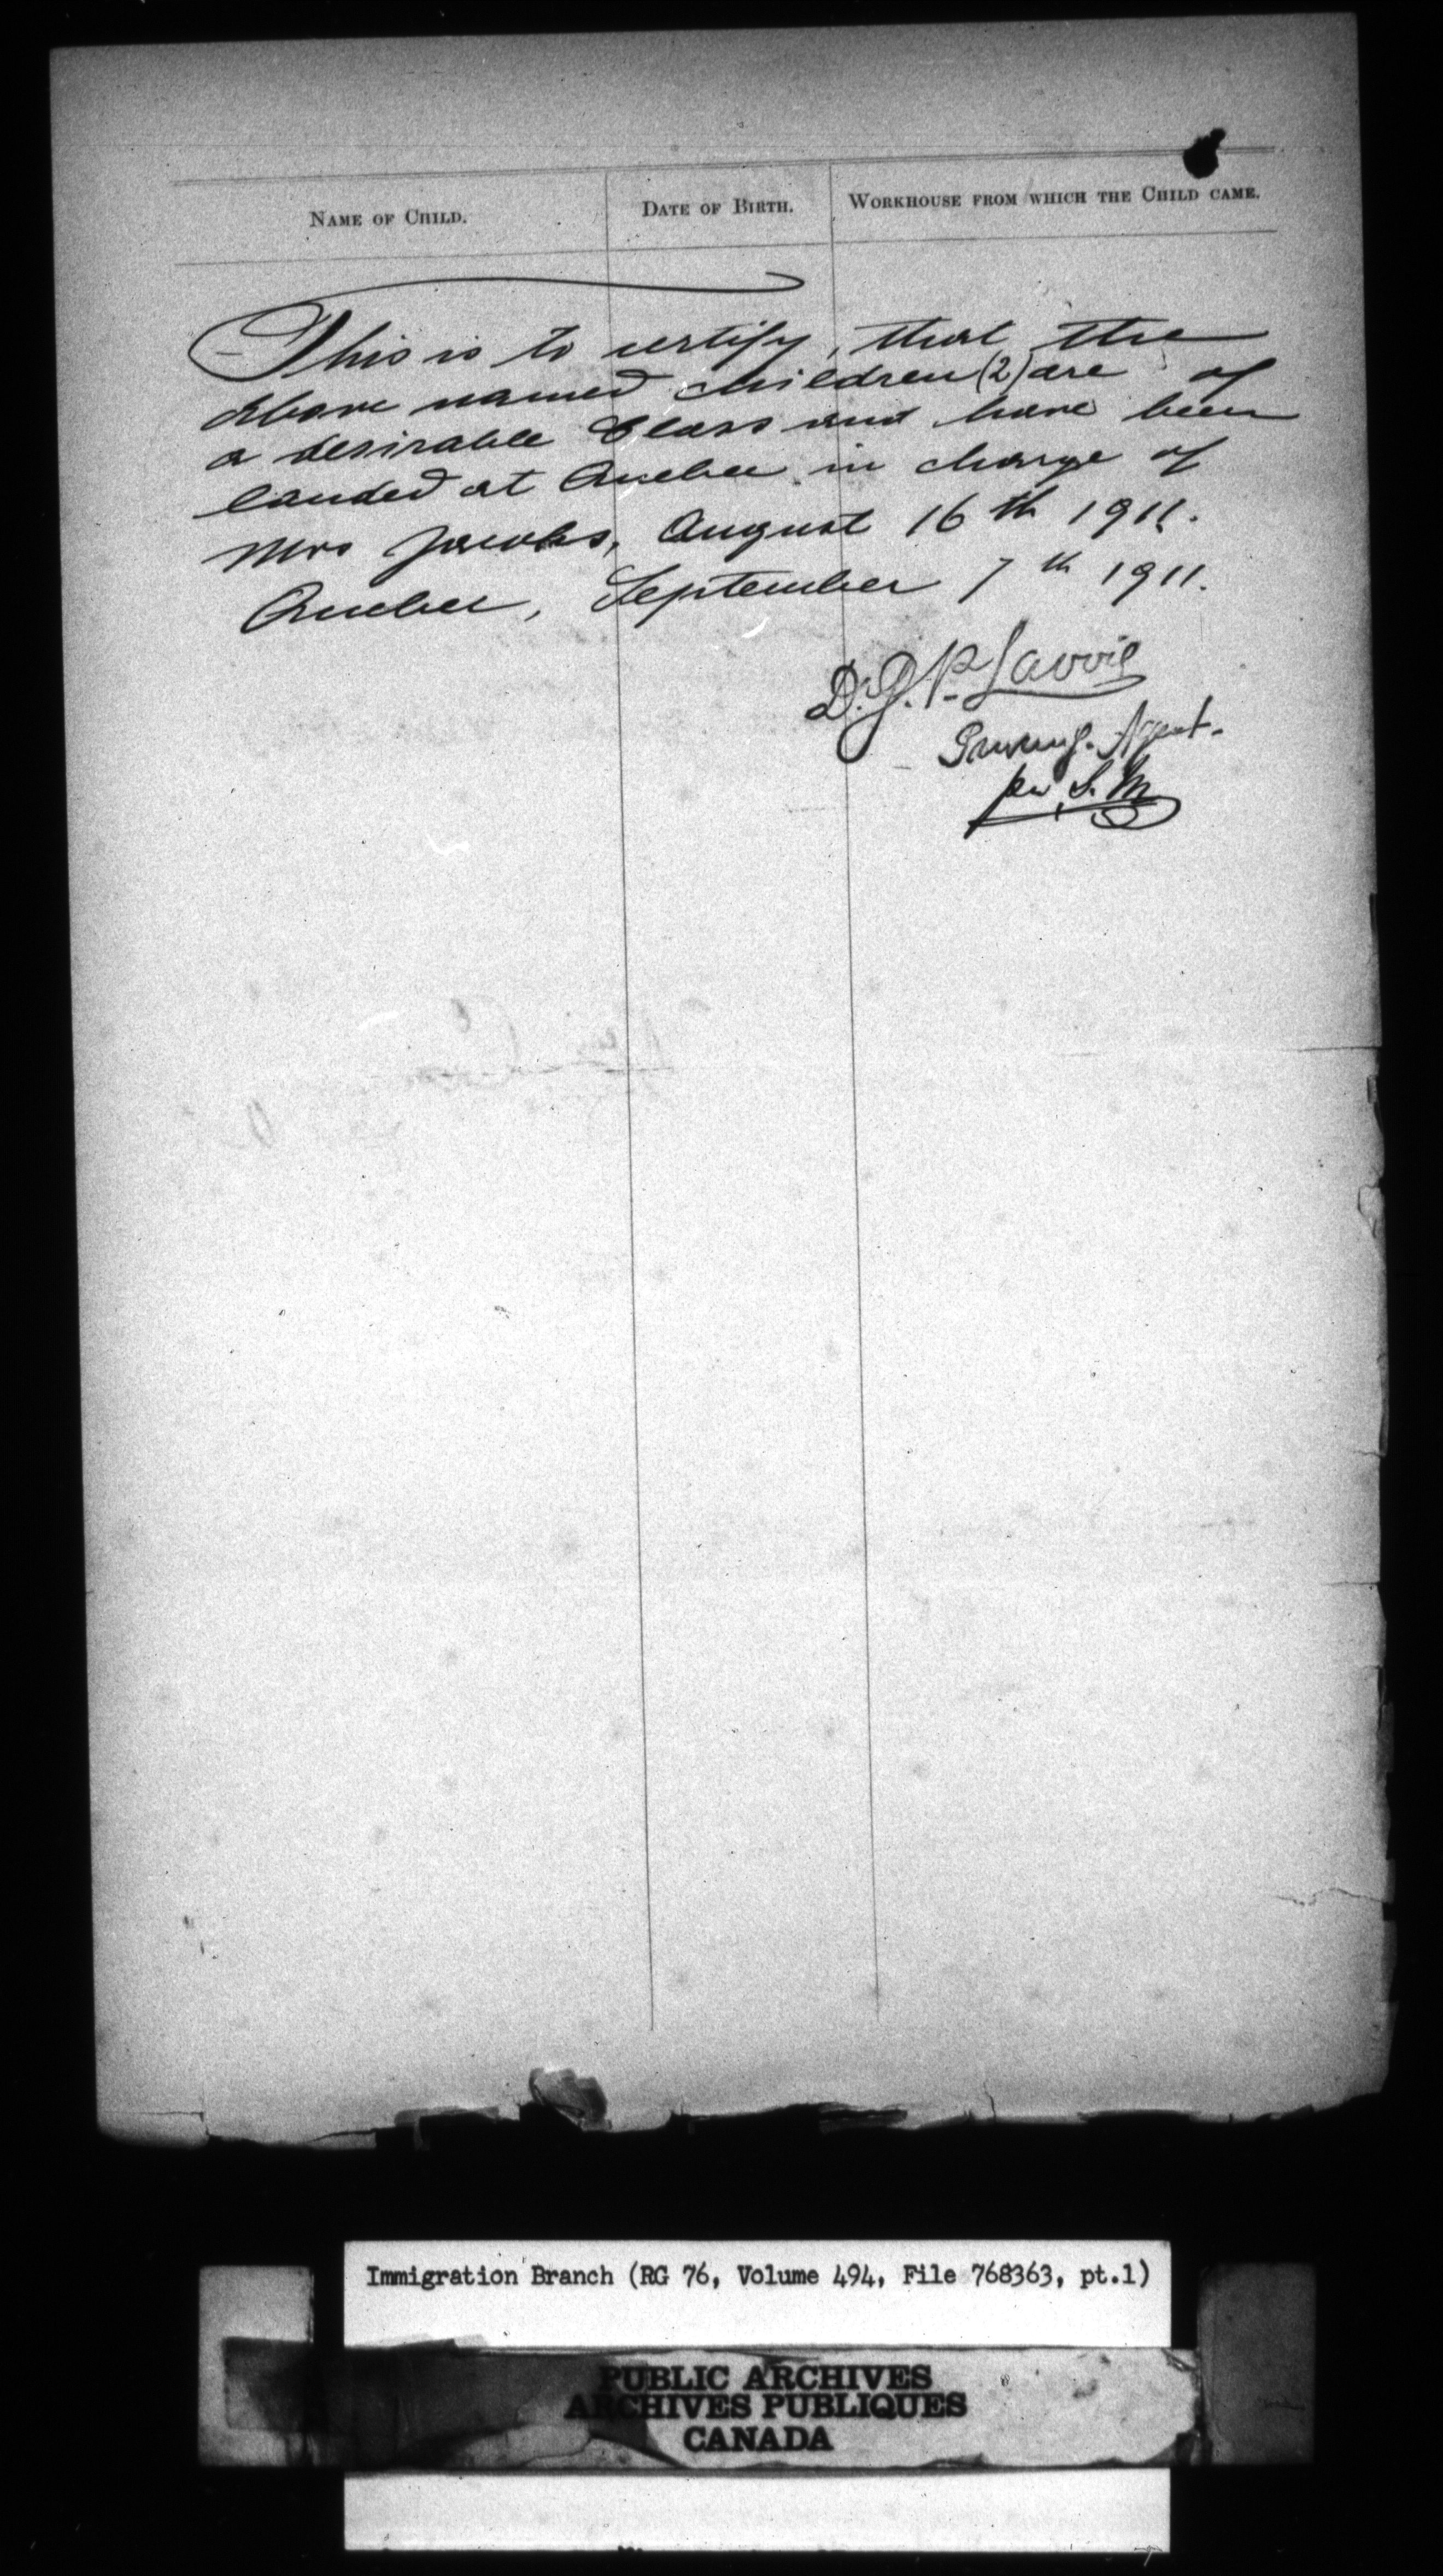 NAME OF CHILD.
DATE OF BIRTH.
WORKHOUSE FROM WHICH THE CHILD CAME.
This is to certify, that the
above named children (2) are of
a desirable class and have been
landed at Quebec in charge of
Mrs Jacobs, August 16th 1911.
Quebec, September 7th 1911.
D. J. P. Lavoie
Immig. Agent.
per S. M
Immigration Branch (RG 76, Volume 494, File 768363, pt.1)
PUBLIC ARCHIVES
ARCHIVES PUBLIQUES
CANADA